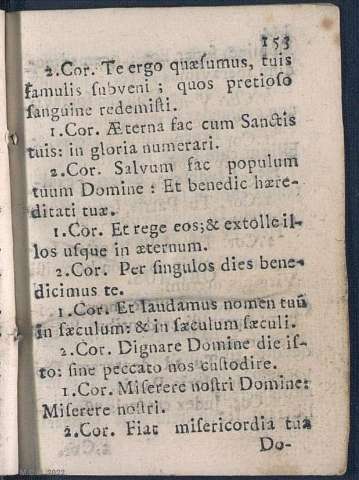 153
2.Cor. Te ergo quæsumus, tuis
famulis subveni ; quos pretioso
sanguine redemisti.
1.Cor. Æterna fac cum Sanctis
tuis: in gloria numerari.
2.Cor. Salvum fac populum
tuum Domine : Et benedic hære-
ditati tuæ.
1.Cor. Et rege eos; & extolle il-
los usque in æternum.
2.Cor. Per singulos dies bene-
dicimus te.
1.Cor. Et laudamus nomen tuũ
in sæculum: & in sæculum sæculi.
2.Cor. Dignare Domine die is-
to: sine peccato nos custodire.
1.Cor. Miserere nostri Domine:
Miserere nostri.
2.Cor. Fiat misericordia tua
Do-